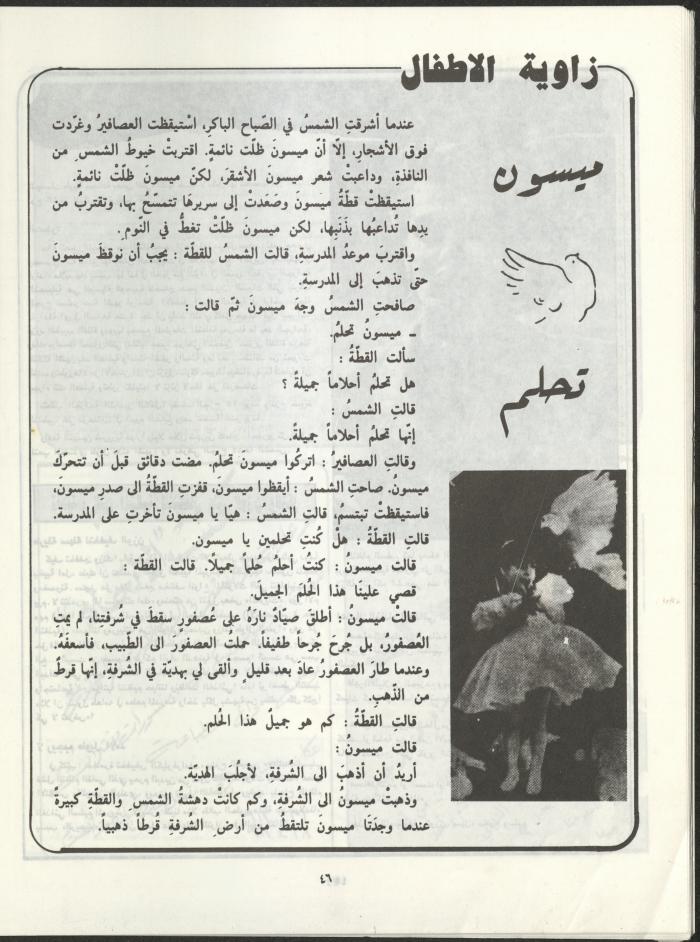 زاوية الاطفال
ميسون
تحلم
عندما أشرقتِ الشمسُ في الصّباح الباكرِ، اسْتيقظت العصافيرُ وغرّدت
فوق الأشجارِ، إلّا أنّ ميسونَ ظلّت نائمةً. اقتربتْ خيوطُ الشمسِ من
النافذةِ، وداعبتْ شعر ميسونَ الأشقرَ، لكنّ ميسونَ ظلّتْ نائمةً.
استيقظتْ قطّةُ ميسونَ وصَعَدتْ إلى سريرهَا تتمسّحُ بها، وتقتربُ من
يدِها تُداعبُها بذَنَبِها، لكن ميسونَ ظلّتْ تغطُّ في النّومِ.
واقتربَ موعدُ المدرسةِ، قالت الشمسُ للقطّة : يجبُ أن نوقظَ ميسونَ
حتّى تذهبَ إلى المدرسةِ.
صافحتِ الشمسُ وجهَ ميسونَ ثمّ قالت :
ـ ميسونُ تحلمُ.
سألت القطّةُ :
هل تحلمُ أحلاماً جميلةً ؟
قالتِ الشمسُ :
إنّها تحلمُ أحلاماً جميلةً.
وقالتِ العصافيرُ : اتركُوا ميسونَ تحلمُ. مضت دقائق قبلَ أن تتحرّكَ
ميسونُ. صاحتِ الشمسُ : أيقظوا ميسونَ، قفزتِ القطّةُ الى صدرِ ميسونَ،
فاستيقظتْ تبتسمُ، قالتِ الشمسُ : هيّا يا ميسونَ تأخرتِ على المدرسة.
قالتِ القطّةُ : هلْ كُنتِ تحلمين يا ميسون.
قالت ميسونُ : كنتُ أحلمُ حُلماً جميلًا. قالت القطّة :
قصي علينَا هذا الحُلمَ الجميلَ.
قالتْ ميسونُ : أطلقَ صيّادٌ نارَهُ على عُصفورٍ سقطَ في شُرفتنا، لم يمتِ
العُصفورُ، بل جُرحَ جُرحاً طفيفاً. حملتُ العصفورَ الى الطّبيب، فأسعفَهُ.
وعندما طارَ العصفورُ عادَ بعد قليلٍ وألقى لي بهديّة في الشُرفةِ، إنّها قرطٌ
من الذّهبِ.
قالتِ القطّةُ : كم هو جميلٌ هذا الحُلم.
قالت ميسونُ :
أريدُ أن أذهبَ الى الشُرفةِ، لأجلُبَ الهديّة.
وذهبتْ ميسونُ الى الشُرفةِ، وكم كانتْ دهشةُ الشمسِ والقطّةِ كبيرةً
عندما وجدَتَا ميسونَ تلتقطُ من أرضِ الشُرفةِ قُرطاً ذهبياً.
٤٦